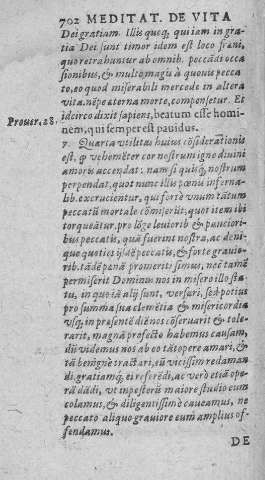 702 MEDITAT. DE VITA
Dei gratiam. Illis quoq; qui iam in gra
tia Dei sunt timor idem est loco frani,
quo retrahuntur ab omnib. peccādi occa
sionibus, & multo magis à quouis pecca
to, eo quod miserabili mercede in altera
vita, nēpe aterna morte, compensetur. Et
idcirco dixit sapiens, beatum esse homi
Prouer. 28. nem, qui semper est pauidus.
7. Quarta vtilitas huius cōsiderationis
est, vehemēter cor nostrum igne diuini
amoris accendat. nam si quisq; nostrum
perpendat, quot nunc illis pœnis inferna-
lib. excrucientur, qui fortè vnum tātum
peccatū mortale cōmiserūt, quot item ibi
torqueātur, pro lōge leuiorib. & paucioribus
peccatis, quā fuerint nostra, ac deni-
que quoties ijsdē peccatis, & forte grauio-
rib. tādē pœnā promeriti simus, nec tamē
permiserit Dominus nos in misero illo sta
tu, in quo iā alij sunt, versari, sed potius
pro summa sua clemētia & misericordia
vsq; in presentē diē nos cōseruarit & tole-
rarit, magnā profectò habemus causam,
dū videmus nos ab eo tātopere amari, &
tā benignè tractari, eū vicissim redaman
di, gratiamq; ei referēdi, ac verò etiā ope-
rā dādi, vt in posterū maiore studio eum
colamus, & diligentissimè caueamus, ne
peccato aliquo grauiore eum amplius of-
fendamus.
DE